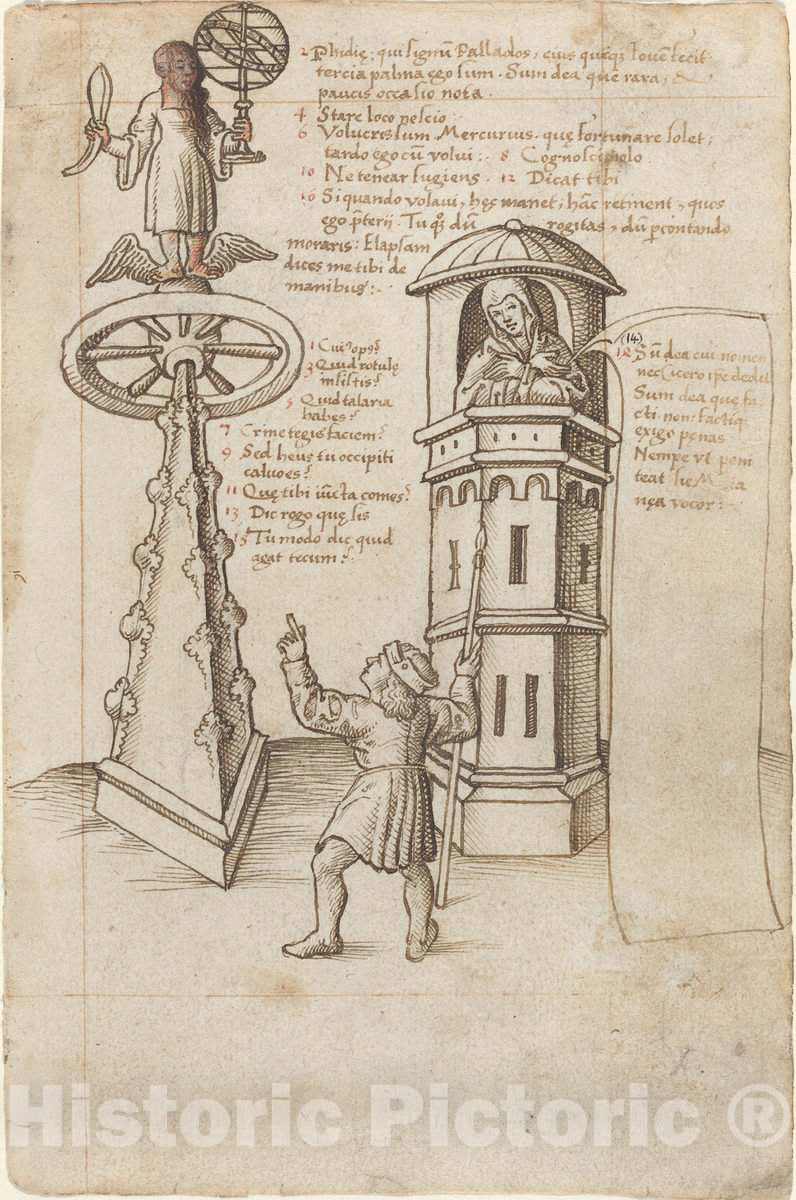 2 Phidię; qui signū Pallados, eius queqȝ Iouē fecit
tercia palma ego sum. Sum dea que rara, &
paucis occasio nota.
4 Stare loco nescio:
6 Volucris sum. Mercurius. quę fortunare solet,
tardo ego cū volui:. 8 Cognosci nolo
10 Ne tenear fugiens. 12 Dicat tibi
16 Si quando volaui, hęc manet; hāc retinent, quos
ego p̄terii. Tu qȝ dū rogitas, dū p̄contando
moraris: Elapsam
dices me tibi de
manibus:.
1 Cui' ops?
3 Quid rotulę
insistis?
5 Quid talaria
habes?
7 Crine tegis faciem?
9 Sed heus tu occipiti
calua es?
11 Quę tibi iūcta comes?
13 Dic rogo quę sis
15 Tu modo dic quid
agat tecum?
(14)
Sū dea cui nomen
nec Cicero ipe dedit
Sum dea que fa-
cti non factiqȝ
exigo penas
Nempe vt peni
teat sic
nęa vocor:
Historic Pictoric ®